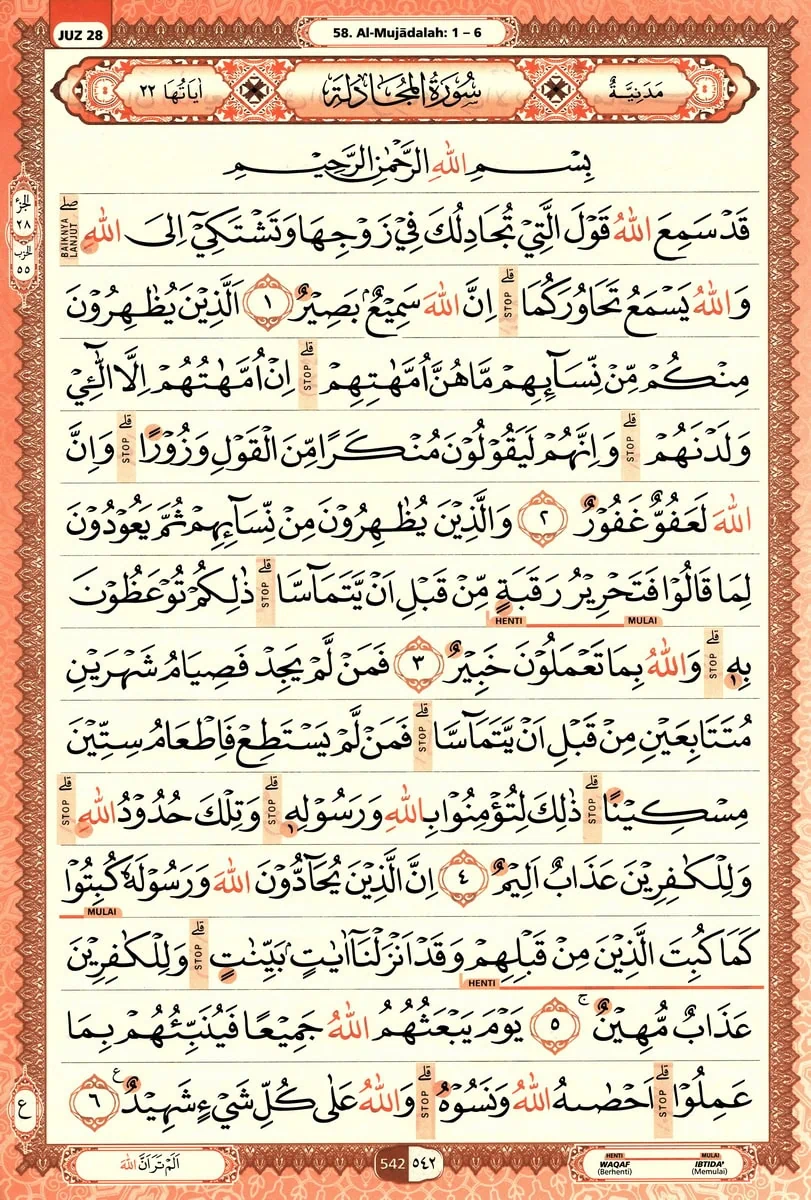 JUZ 28
58. Al-Mujādalah: 1 – 6
مَدَنِيَّةٌ
سُوْرَةُ الْمُجَادلَة
اٰيَاتُهَا ٢٢
بِسْمِ اللّٰهِ الرَّحْمٰنِ الرَّحِيْمِ
الجزء
٢٨
الحزب
٥٥
قَدْ سَمِعَ اللّٰهُ قَوْلَ الَّتِيْ تُجَادِلُكَ فِيْ زَوْجِهَا وَتَشْتَكِيْٓ اِلَى اللّٰهِ ۖ BAIKNYA LANJUT
وَاللّٰهُ يَسْمَعُ تَحَاوُرَكُمَا ۗ STOP اِنَّ اللّٰهَ سَمِيْعٌۢ بَصِيْرٌ ١ اَلَّذِيْنَ يُظٰهِرُوْنَ
مِنْكُمْ مِّنْ نِّسَاۤىِٕهِمْ مَّا هُنَّ اُمَّهٰتِهِمْ ۗ STOP اِنْ اُمَّهٰتُهُمْ اِلَّا الّٰۤـِٔيْ
وَلَدْنَهُمْ ۗ STOP وَاِنَّهُمْ لَيَقُوْلُوْنَ مُنْكَرًا مِّنَ الْقَوْلِ وَزُوْرًا ۗ STOP وَاِنَّ
اللّٰهَ لَعَفُوٌّ غَفُوْرٌ ٢ وَالَّذِيْنَ يُظٰهِرُوْنَ مِنْ نِّسَاۤىِٕهِمْ ثُمَّ يَعُوْدُوْنَ
لِمَا قَالُوْا فَتَحْرِيْرُ رَقَبَةٍ مِّنْ قَبْلِ اَنْ يَّتَمَاۤسَّا ۗ STOP ذٰلِكُمْ تُوْعَظُوْنَ
HENTI MULAI
بِهٖ ۗ STOP وَاللّٰهُ بِمَا تَعْمَلُوْنَ خَبِيْرٌ ٣ فَمَنْ لَّمْ يَجِدْ فَصِيَامُ شَهْرَيْنِ
مُتَتَابِعَيْنِ مِنْ قَبْلِ اَنْ يَّتَمَاۤسَّا ۗ STOP فَمَنْ لَّمْ يَسْتَطِعْ فَاِطْعَامُ سِتِّيْنَ
مِسْكِيْنًا ۗ STOP ذٰلِكَ لِتُؤْمِنُوْا بِاللّٰهِ وَرَسُوْلِهٖ ۗ STOP وَتِلْكَ حُدُوْدُ اللّٰهِ ۗ STOP
وَلِلْكٰفِرِيْنَ عَذَابٌ اَلِيْمٌ ٤ اِنَّ الَّذِيْنَ يُحَاۤدُّوْنَ اللّٰهَ وَرَسُوْلَهٗ كُبِتُوْا
MULAI
كَمَا كُبِتَ الَّذِيْنَ مِنْ قَبْلِهِمْ وَقَدْ اَنْزَلْنَآ اٰيٰتٍۢ بَيِّنٰتٍ ۗ STOP وَلِلْكٰفِرِيْنَ
HENTI
عَذَابٌ مُّهِيْنٌ ۚ ٥ يَوْمَ يَبْعَثُهُمُ اللّٰهُ جَمِيْعًا فَيُنَبِّئُهُمْ بِمَا
عَمِلُوْا ۗ STOP اَحْصٰىهُ اللّٰهُ وَنَسُوْهُ ۗ STOP وَاللّٰهُ عَلٰى كُلِّ شَيْءٍ شَهِيْدٌ ع ٦
ع
اَلَمْ تَرَ اَنَّ اللّٰهَ
542 ٥٤٢
HENTI WAQAF (Berhenti)
MULAI IBTIDA' (Memulai)